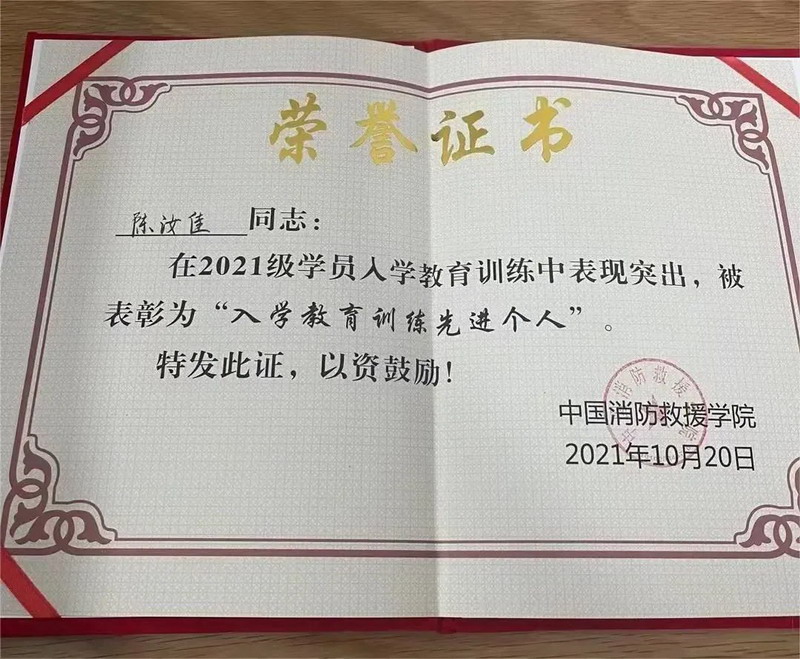 荣誉证书
陈汝佳 同志：
在2021级学员入学教育训练中表现突出，被
表彰为“入学教育训练先进个人”。
特发此证，以资鼓励！
中国消防救援学院
中国消防救援学院
2021年10月20日